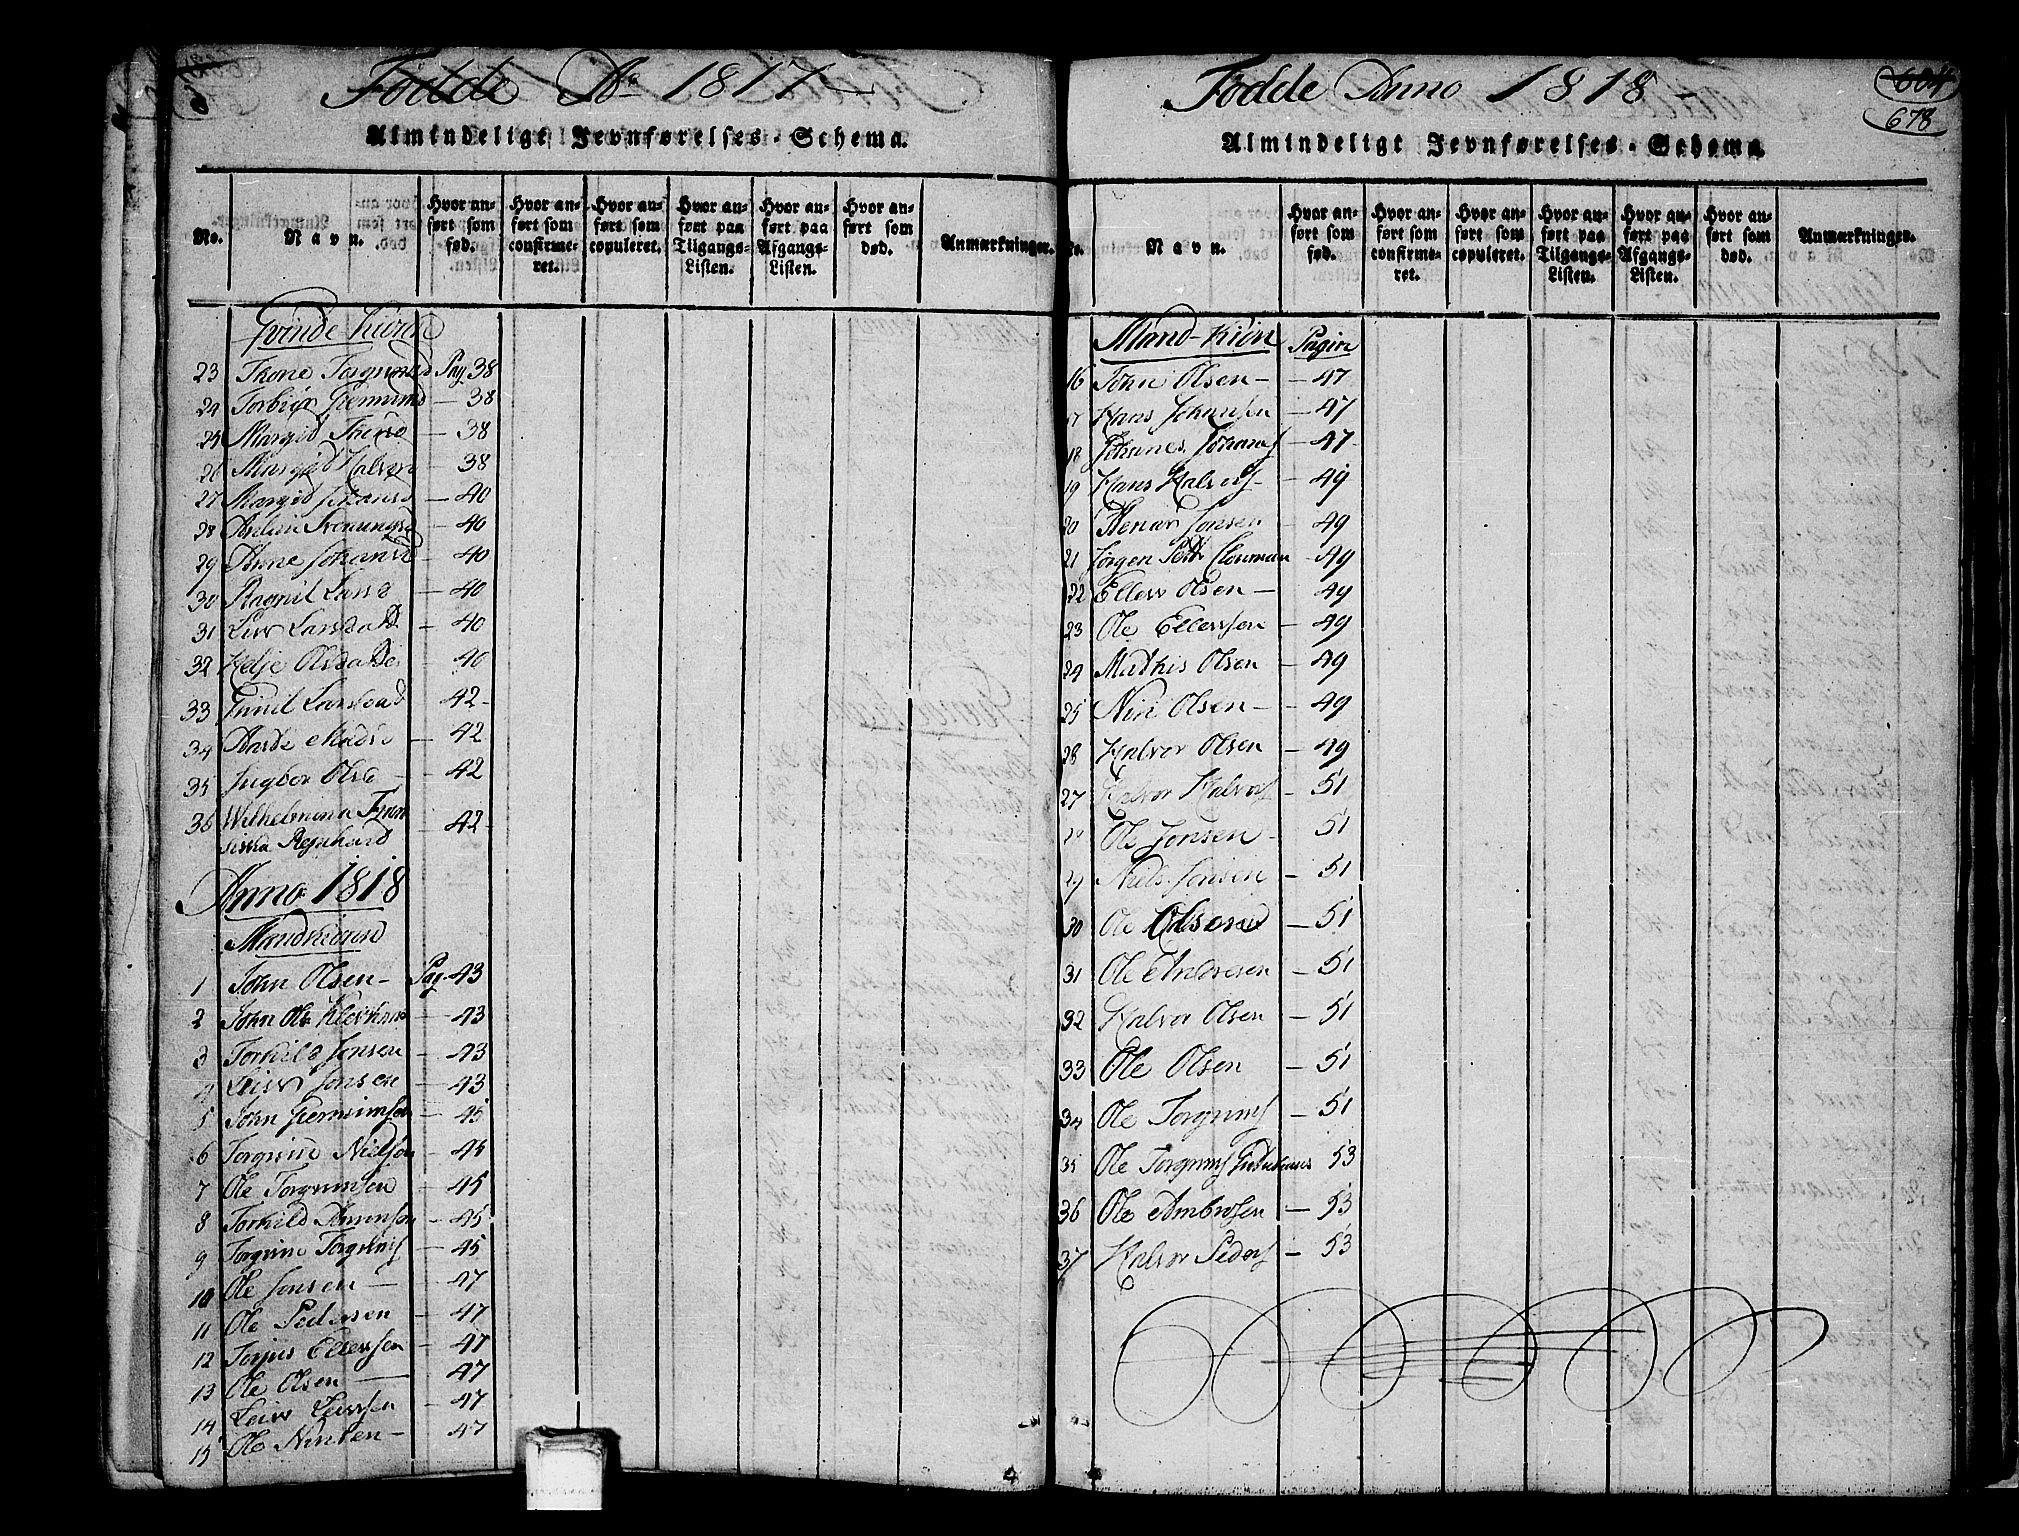 Fødde Ao 1817
Almindeligt Jevnførelses-Schema.
No.
Navn.
Hvor anført som fød.
Hvor anført som confirmeret.
Hvor anført som copuleret.
Hvor anført paa Tilgangs-Listen.
Hvor anført paa Afgangs-Listen.
Hvor anført som død.
Anmærkninger.
Qvinde kiøn
23 Thone Torgrimsd Pag 38
24 Torbiør Giermunds — 38
25 Margid — 38
26 Margid Halvors — 38
27 Margid Johans — 40
28 — 40
29 Anne Johansd — 40
30 Ragnil Larsd — 40
31 Liv Larsdatt — 40
32 Helje Olsdatt — 40
33 Gunil Larsdad 42
34 Aaste Madsd — 42
35 Ingbor Olsd — 42
36 Wilhelmina Fran
siska Reinhard — 42
Anno 1818
Mandkiønn
1 John Olsen — Pag. 43
2 John Ols — 43
3 Torkild Jonsen — 43
4 Leiv Jonsen — 43
5 John Giermunsen — 45
6 Torgrim Nielsen — 45
7 Ole Torgrimsen — 45
8 Torkild Amunsen — 45
9 Torgrim Torgrims — 45
10 Ole Jonsen — 47
11 Ole Pedersen — 47
12 Torjus Ellevsen — 47
13 Ole Olsen — 47
14 Leiv Leivsen — 47
15 Ole — 47
Fødde Anno 1818
604
678
Almindeligt Jevnførelses-Schema
No.
Navn.
Hvor anført som fød.
Hvor anført som confirmeret.
Hvor anført som copuleret.
Hvor anført paa Tilgangs-Listen.
Hvor anført paa Afgangs-Listen.
Hvor anført som død.
Anmærkninger.
Mand-kiøn Pagin
16 John Olsen — 47
17 Hans Johansen — 47
18 Johanes Johans — 47
19 Hans Halvors — 49
20 Jonsen — 49
21 Jørgen Clouman — 49
22 Ellev Olsen — 49
23 Ole Ellevsen — 49
24 Mathis Olsen — 49
25 Niri Olsen — 49
28 Halvor Olsen — 49
27 Halvor Halvors — 51
28 Ole Jonsen — 51
29 Niels Jonsen — 51
30 Ole — 51
31 Ole Andresen — 51
32 Halvor Olsen — 51
33 Ole Olsen — 51
34 Ole Torgrims — 51
35 Ole Torgrims 53
36 Ole Ambrosen — 53
37 Halvor Peders — 53